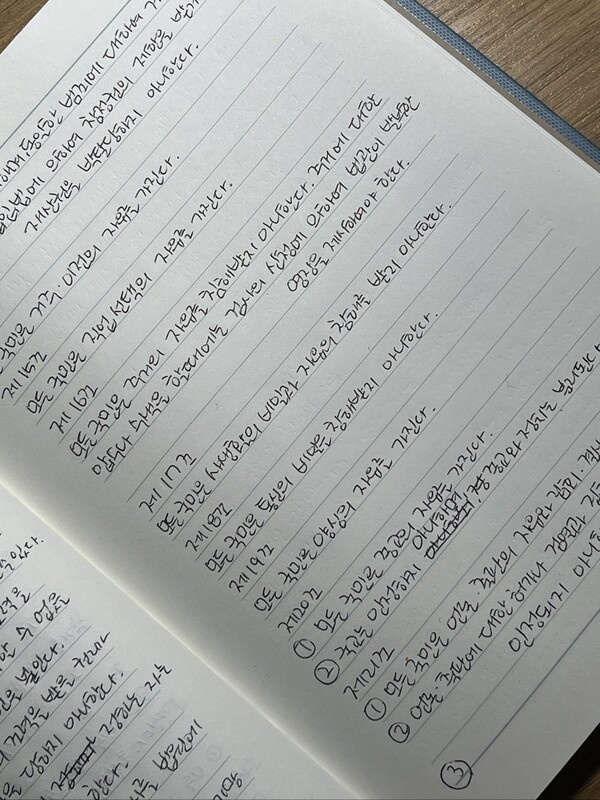 수 있다.
수 없을
당하지 아니한다.
정하는 자는
한다.
동일한 범죄에 대하여
의하여 참정권의 제한을
재산권을 박탈당하지 아니한다.
국민은 거주·이전의 자유를 가진다.
제15조
모든 국민은 직업선택의 자유를 가진다.
제16조
모든 국민은 주거의 자유를 침해받지 아니한다. 주거에 대한
압수나 수색을 할 때에는 검사의 신청에 의하여 법관이 발부한
영장을 제시하여야 한다.
제17조
모든 국민은 사생활의 비밀과 자유의 침해를 받지 아니한다.
제18조
모든 국민은 통신의 비밀을 침해받지 아니한다.
제19조
모든 국민은 양심의 자유를 가진다.
제20조
① 모든 국민은 종교의 자유를 가진다.
② 국교는 인정되지 아니하며 종교와 정치는 분리된다
제21조
① 모든 국민은 언론·출판의 자유와 집회·결사
② 언론·출판에 대한 허가나 검열과
인정되지 아니
③